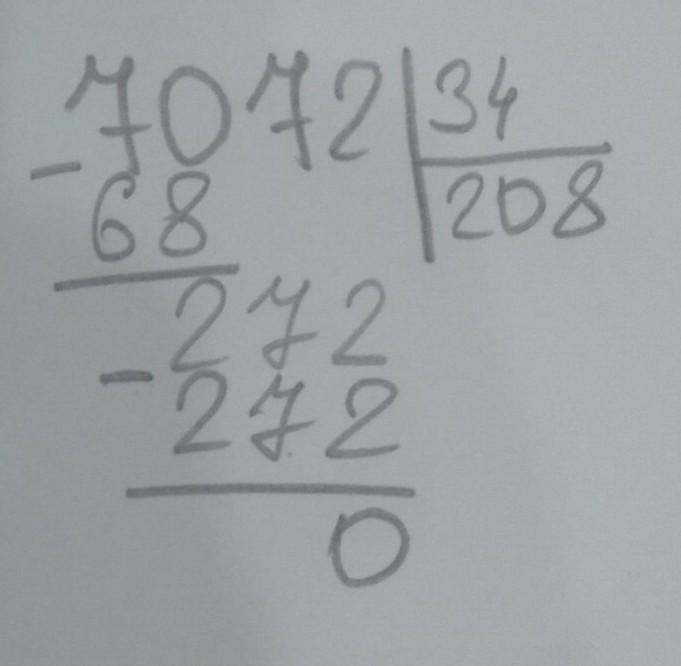 7072 34
- 68 208
272
- 272
0